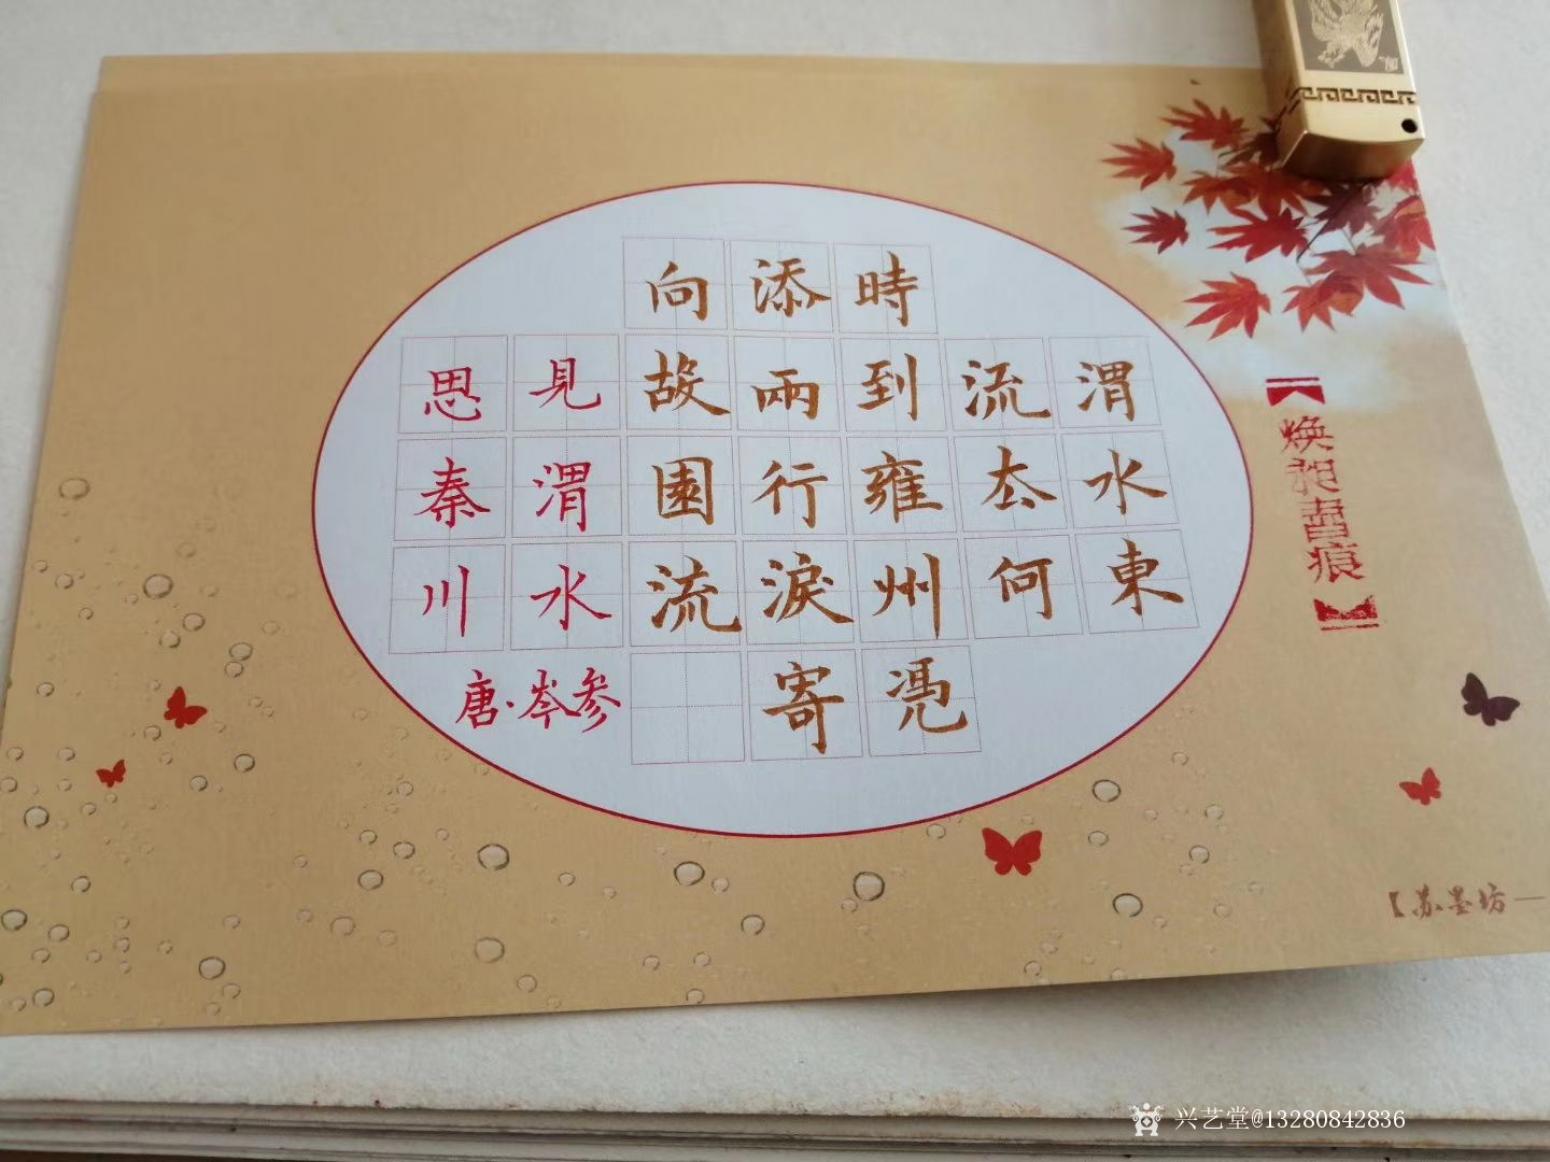 渭水東
流厺何
時到雍州凴
添兩行淚寄
向故園流
見渭水
思秦川
唐·岑参
【焕書痕】
【苏墨坊一
兴艺堂@13280842836